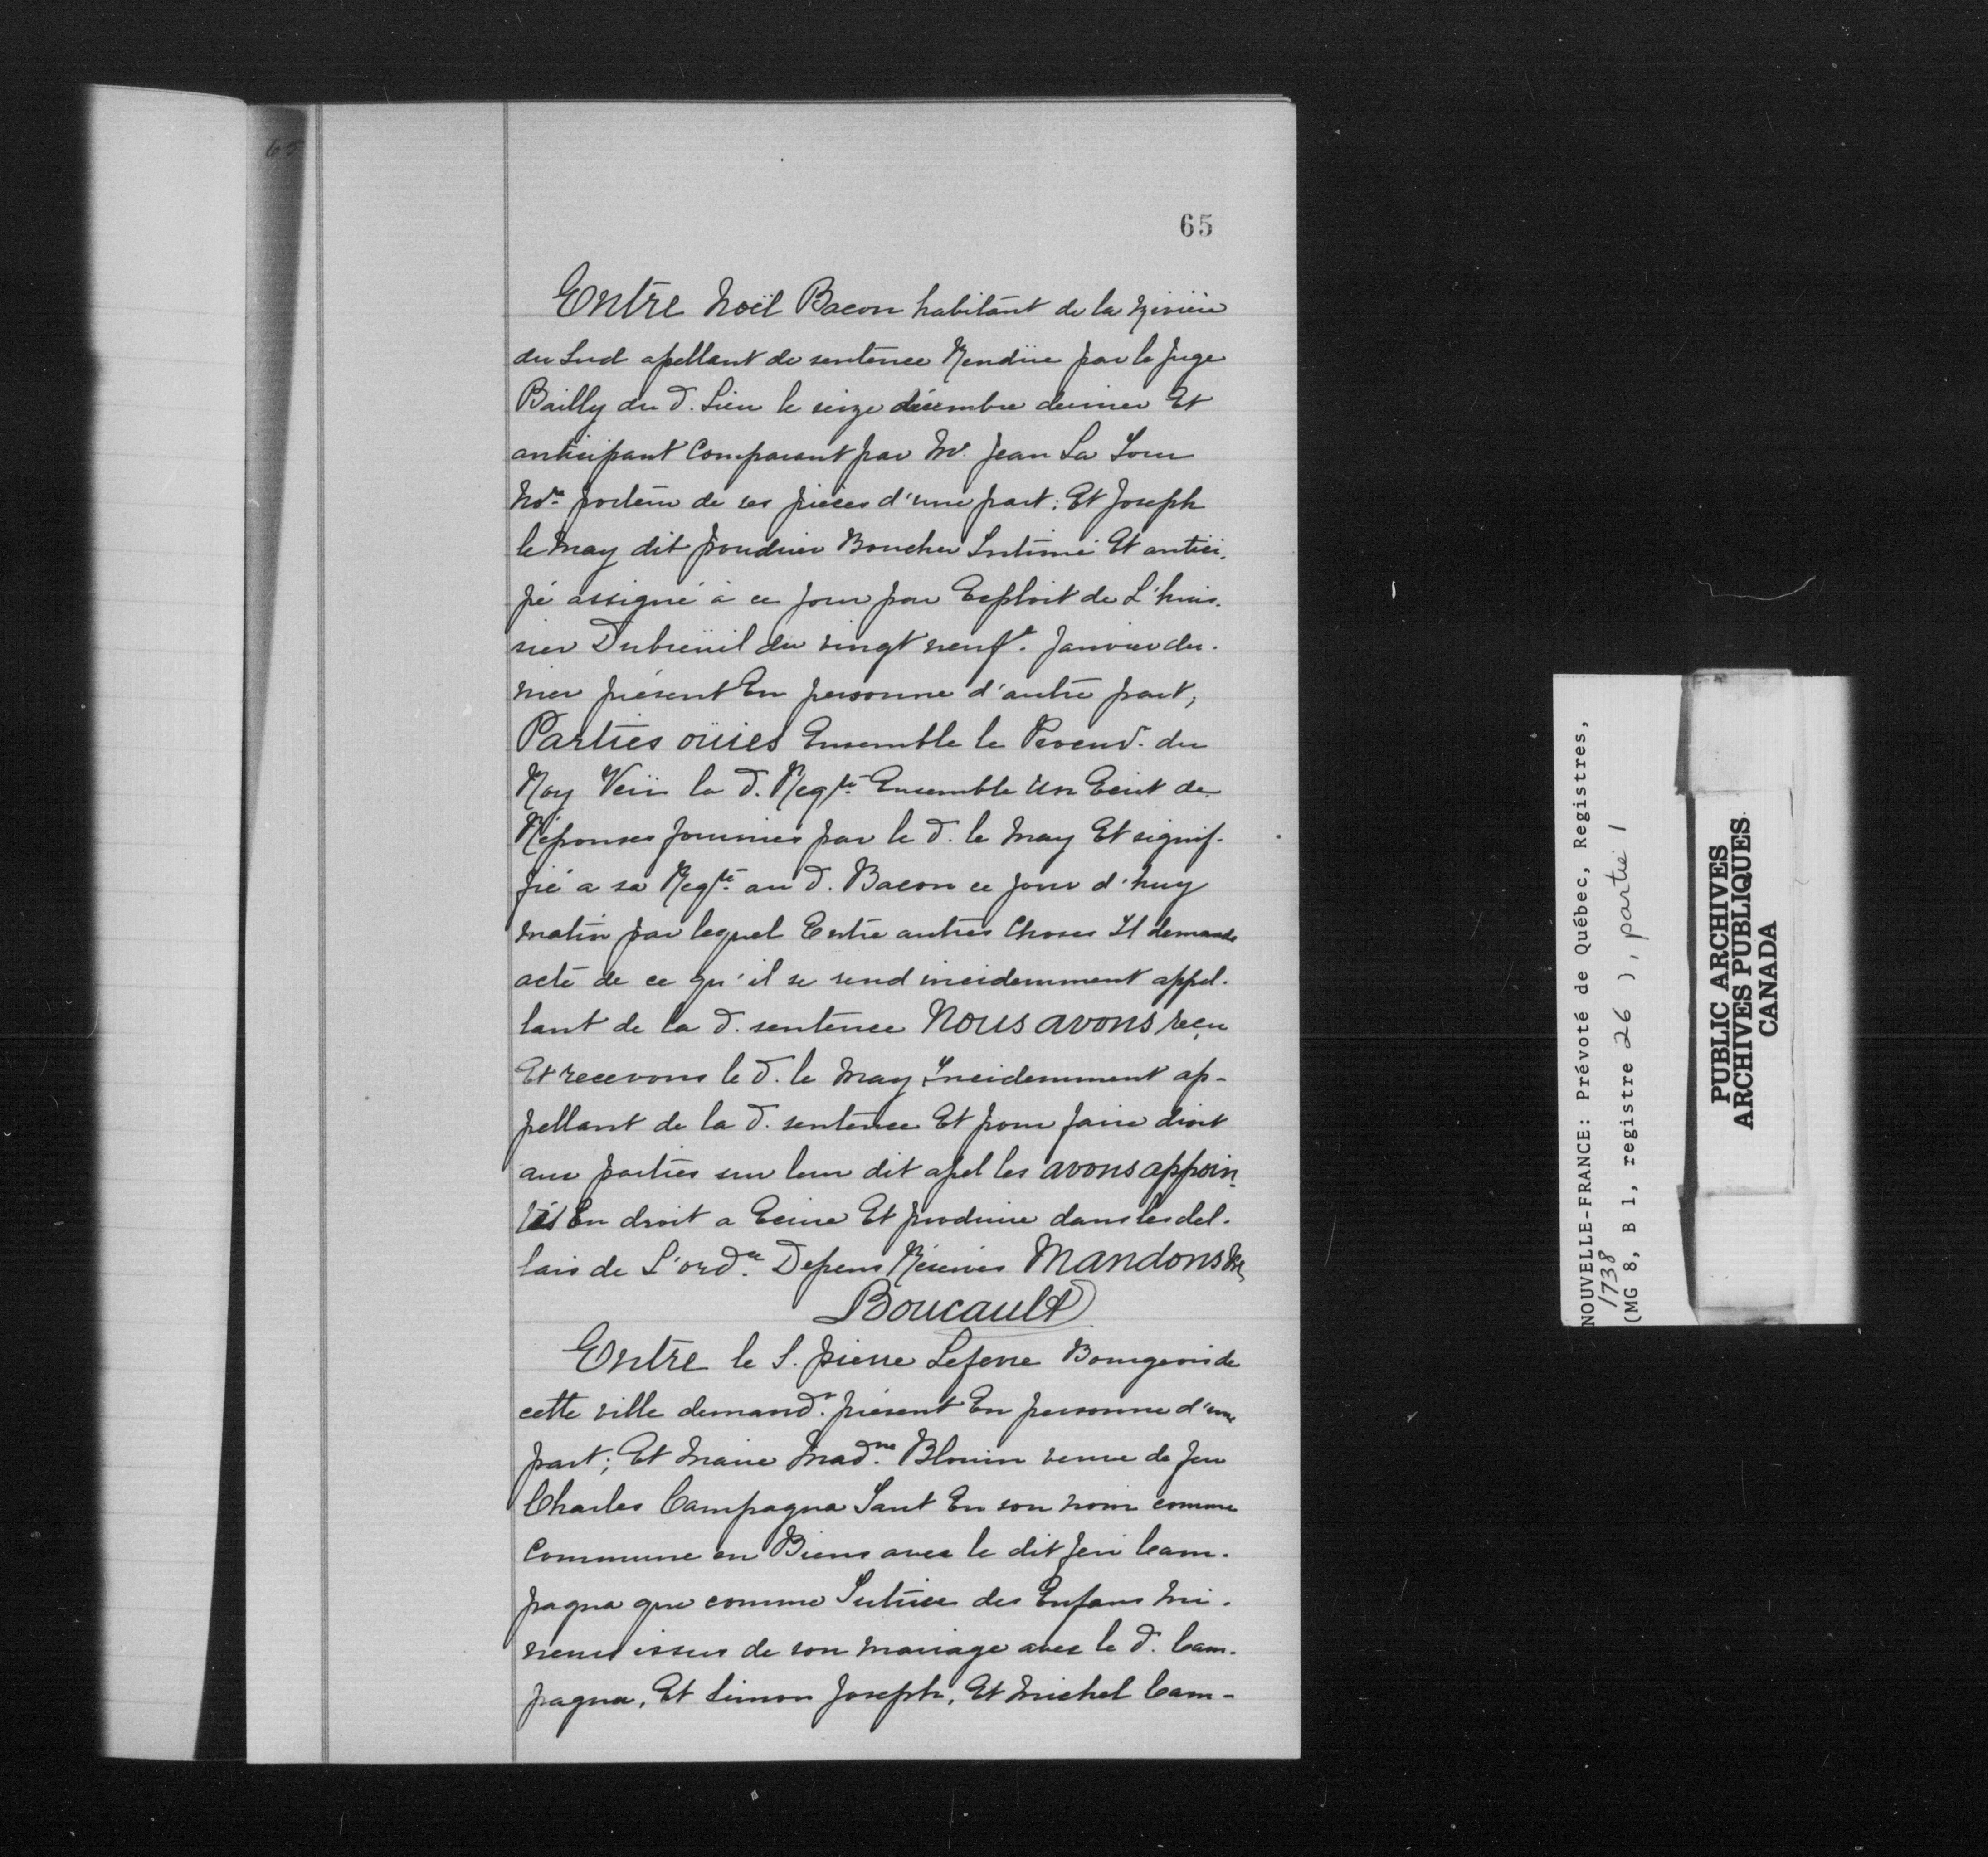 65
65
Entre Noël Bacon habitant de la Rivière
du Sud apellant de sentence Rendüe par le Juge
Bailly du d. Lieu le seize décembre dernier Et
anticipant Comparant par Me. Jean La Tour
Nore. porteur de ses pièces d'une part; Et Joseph
le May dit poudrier Boucher Intimé Et antici.
pé assigné à ce jour par Exploit de L'huis.
sier Dubreüil du vingt neufe. Janvier der.
nier présent En personne d'autre part;
Parties oüies Ensemble le Procur. du
Roy Veü la d. Reqte. Ensemble Un Ecrit de
Réponses fournies par le d. le May Et signif.
fié a sa Reqte. au d. Bacon ce jour d'huy
matin par lequel Entre autres Choses Il demande
acte de ce qu'il se rend incidemment appel.
lant de la d. sentence Nous avons reçu
Et recevons le d. le May Incidemment ap-
pellant de la d. sentence Et pour faire droit
aux parties sur leur dit apel les avons appoin.
tés En droit a Ecrire Et produire dans les del.
lais de L'ordce. Depens Réservés Mandons &c
Boucault
Entre le S. pierre Lefevre Bourgeois de
cette ville demandr. présent En personne d'une
part; Et Marie Madne. Blouin veuve de feu
Charles Campagna Tant En son nom comme
Commune en Biens avec le dit feu Cam.
pagna que comme Tutrice des Enfans Mi.
neurs issus de son mariage avec le d. Cam.
pagna, Et Simon Joseph, Et Michel Cam-
NOUVELLE-FRANCE: Prévoté de Québec, Registres,
1738
(MG 8, B 1, registre 26 ), partie 1
PUBLIC ARCHIVES
ARCHIVES PUBLIQUES
CANADA